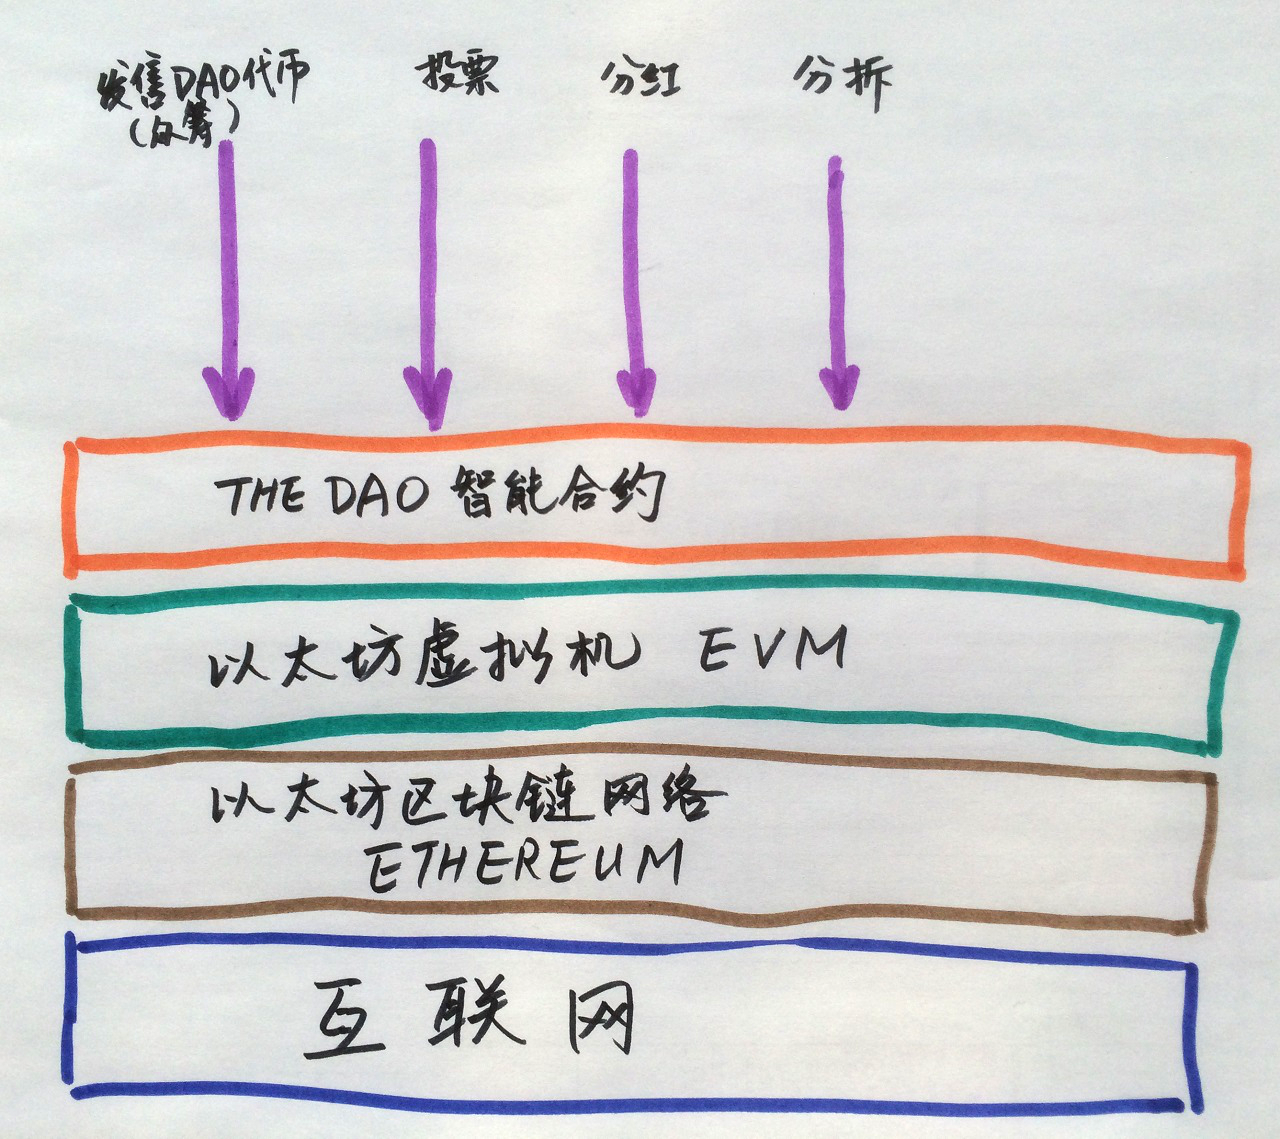 发售DAO代币
(众筹)
投票
分红
分拆
THE DAO 智能合约
以太坊虚拟机 EVM
以太坊区块链网络
ETHEREUM
互联网